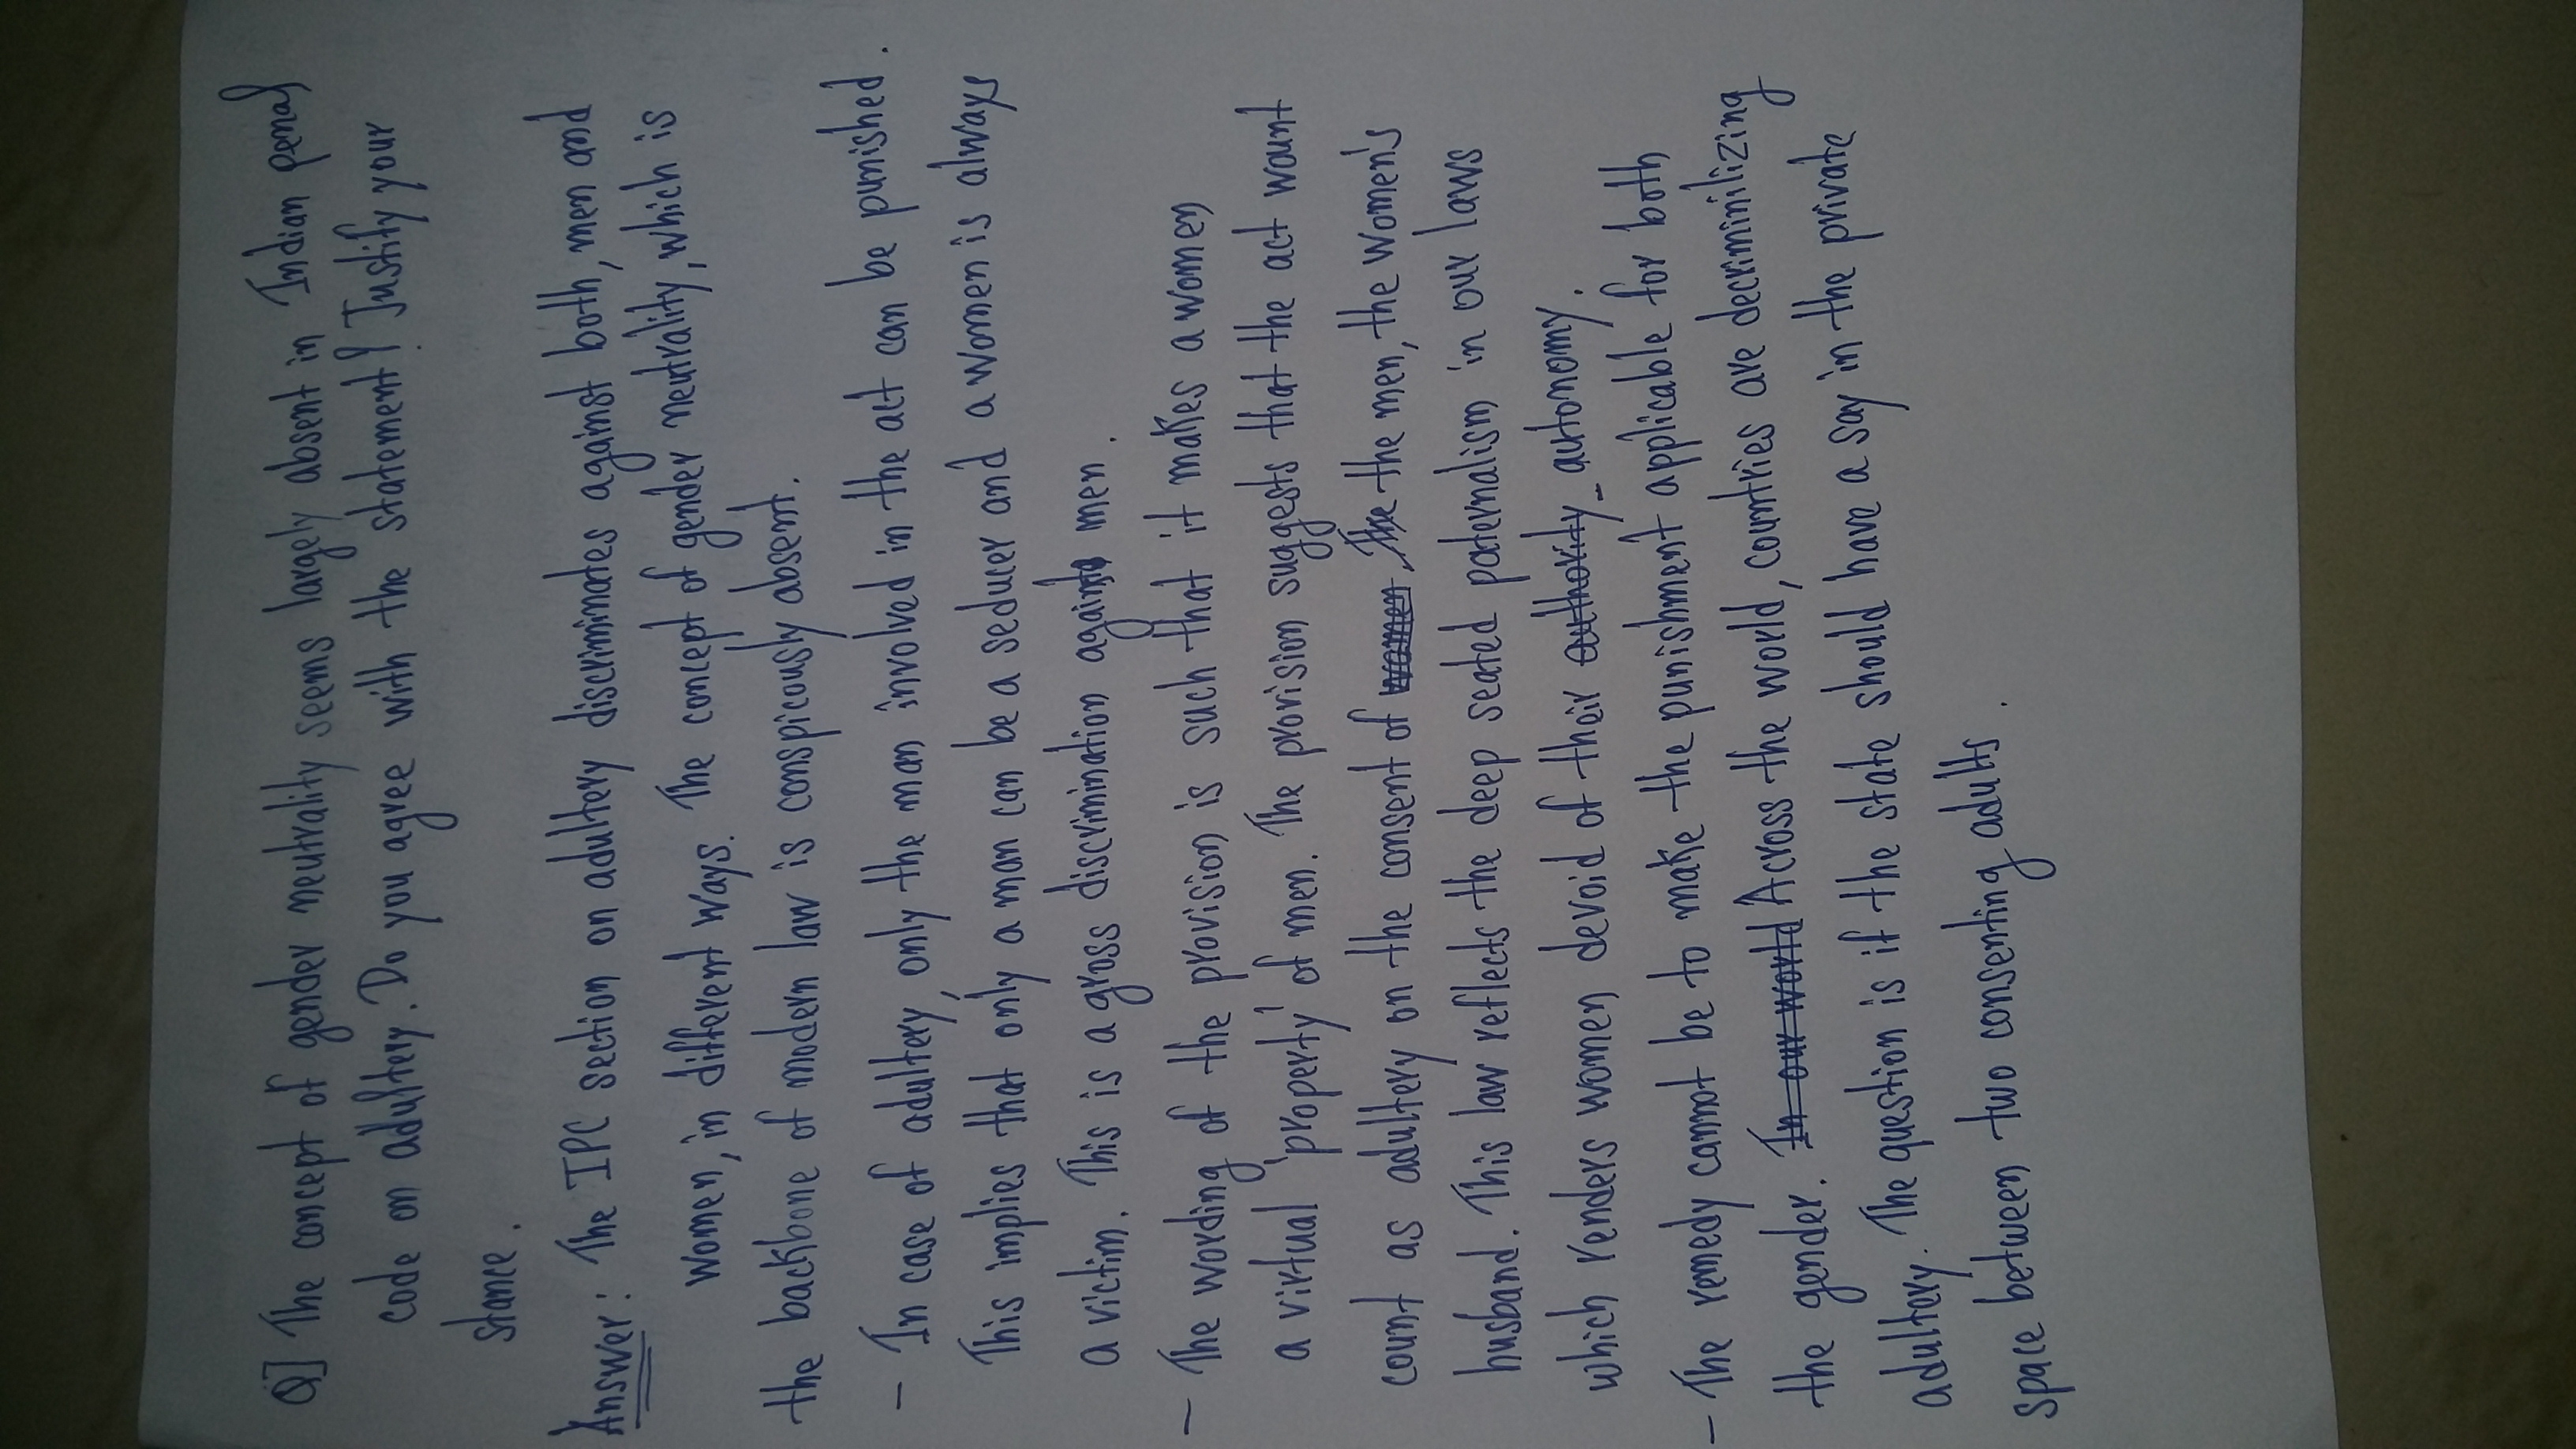 Q] The concept of gender neutrality seems largely absent in Indian penal
code on adultery. Do you agree with the statement? Justify your
stance.
Answer: The IPC section on adultery discriminates against both, men and
women, in different ways. The concept of gender neutrality, which is
the backbone of modern law is conspicuously absent.
- In case of adultery, only the man involved in the act can be punished.
This implies that only a man can be a seducer and a women is always
a victim. This is a gross discrimination against men.
- The wording of the provision is such that it makes a women
a virtual 'property' of men. The provision suggests that the act wount
count as adultery on the consent of women The the men, the women's
husband. This law reflects the deep seated paternalism in our laws
which renders women devoid of their authority autonomy.
- The remedy cannot be to make the punishment applicable for both
the gender. In our world Across the world, countries are decriminilizing
adultory. The question is if the state should have a say in the private
space between two consenting adults.